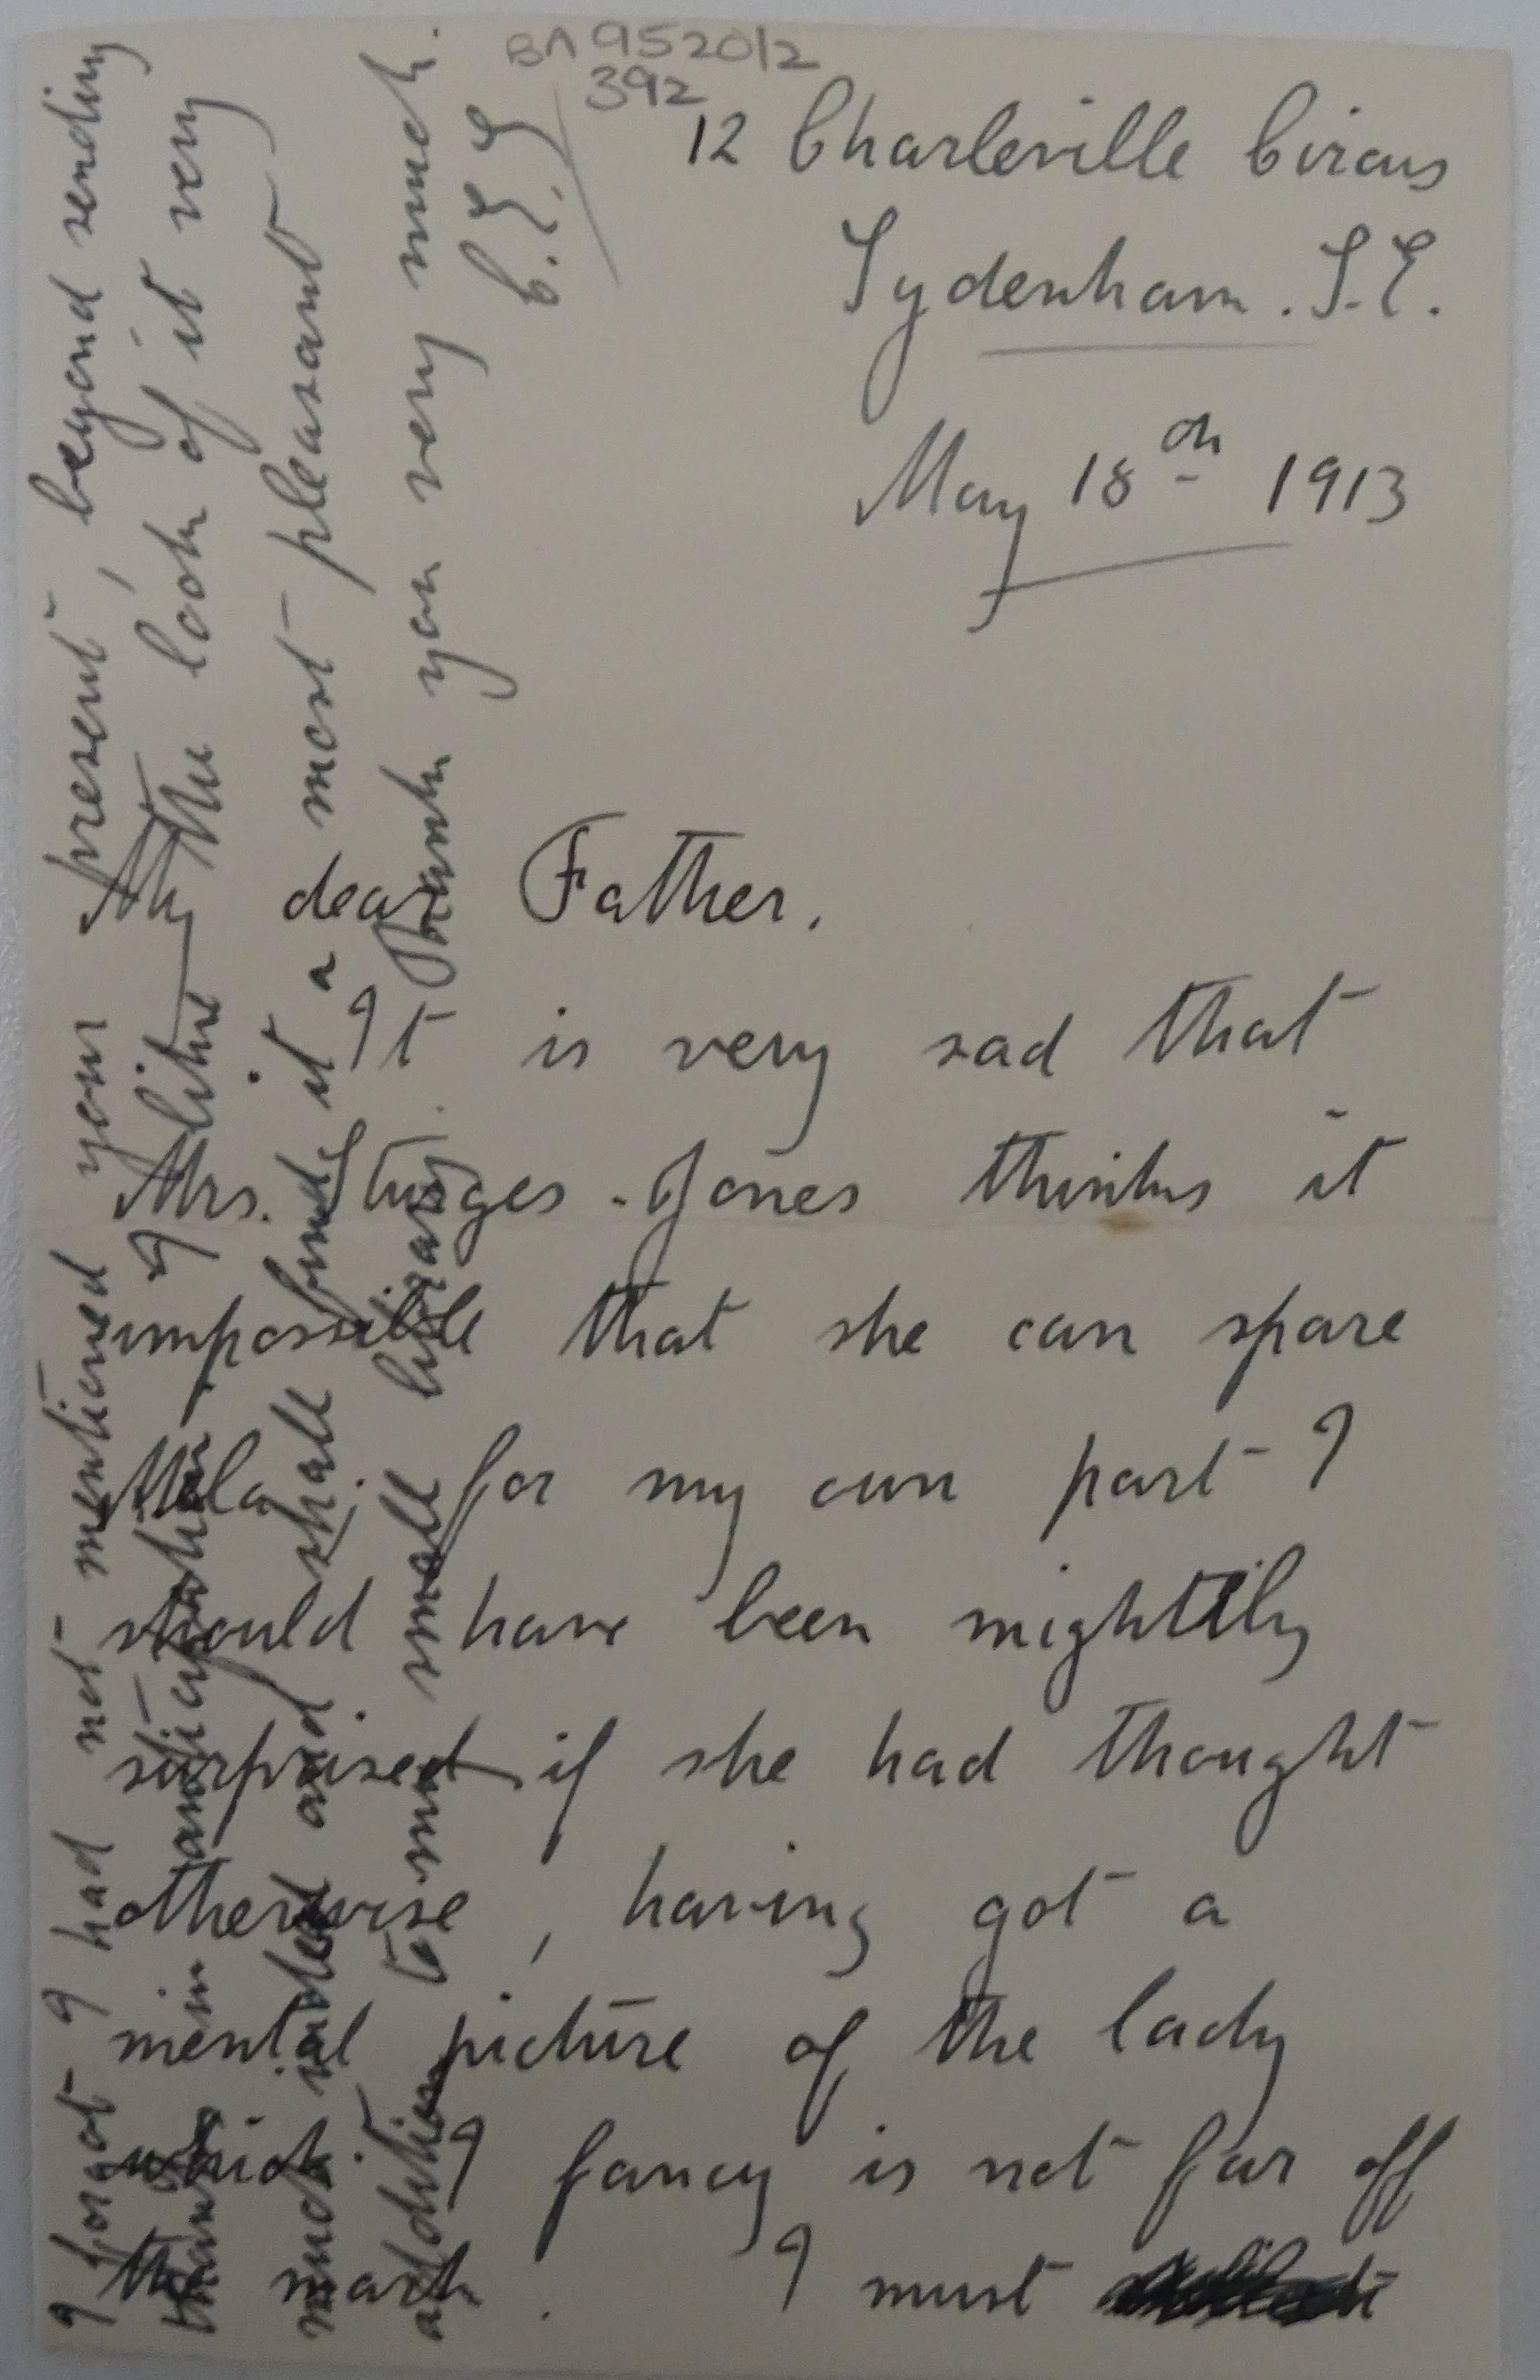 BA 9520/2
392
12 Charleville Circus
Sydenham. S.E.
May 18th 1913
My dear Father.
It is very sad that
Mrs. Sturges-Jones thinks it
impossible that she can spare
; for my own part I
should have been mightily
surprised if she had thought
otherwise, having got a
mental picture of the lady
which I fancy is not far off
the mark. I must
I forgot I had not mentioned your present, beyond sending
thanks in anticipation. I like the look of it very
much indeed and shall find it a most pleasant
addition to my small library. Thank you very much.
C.E.E